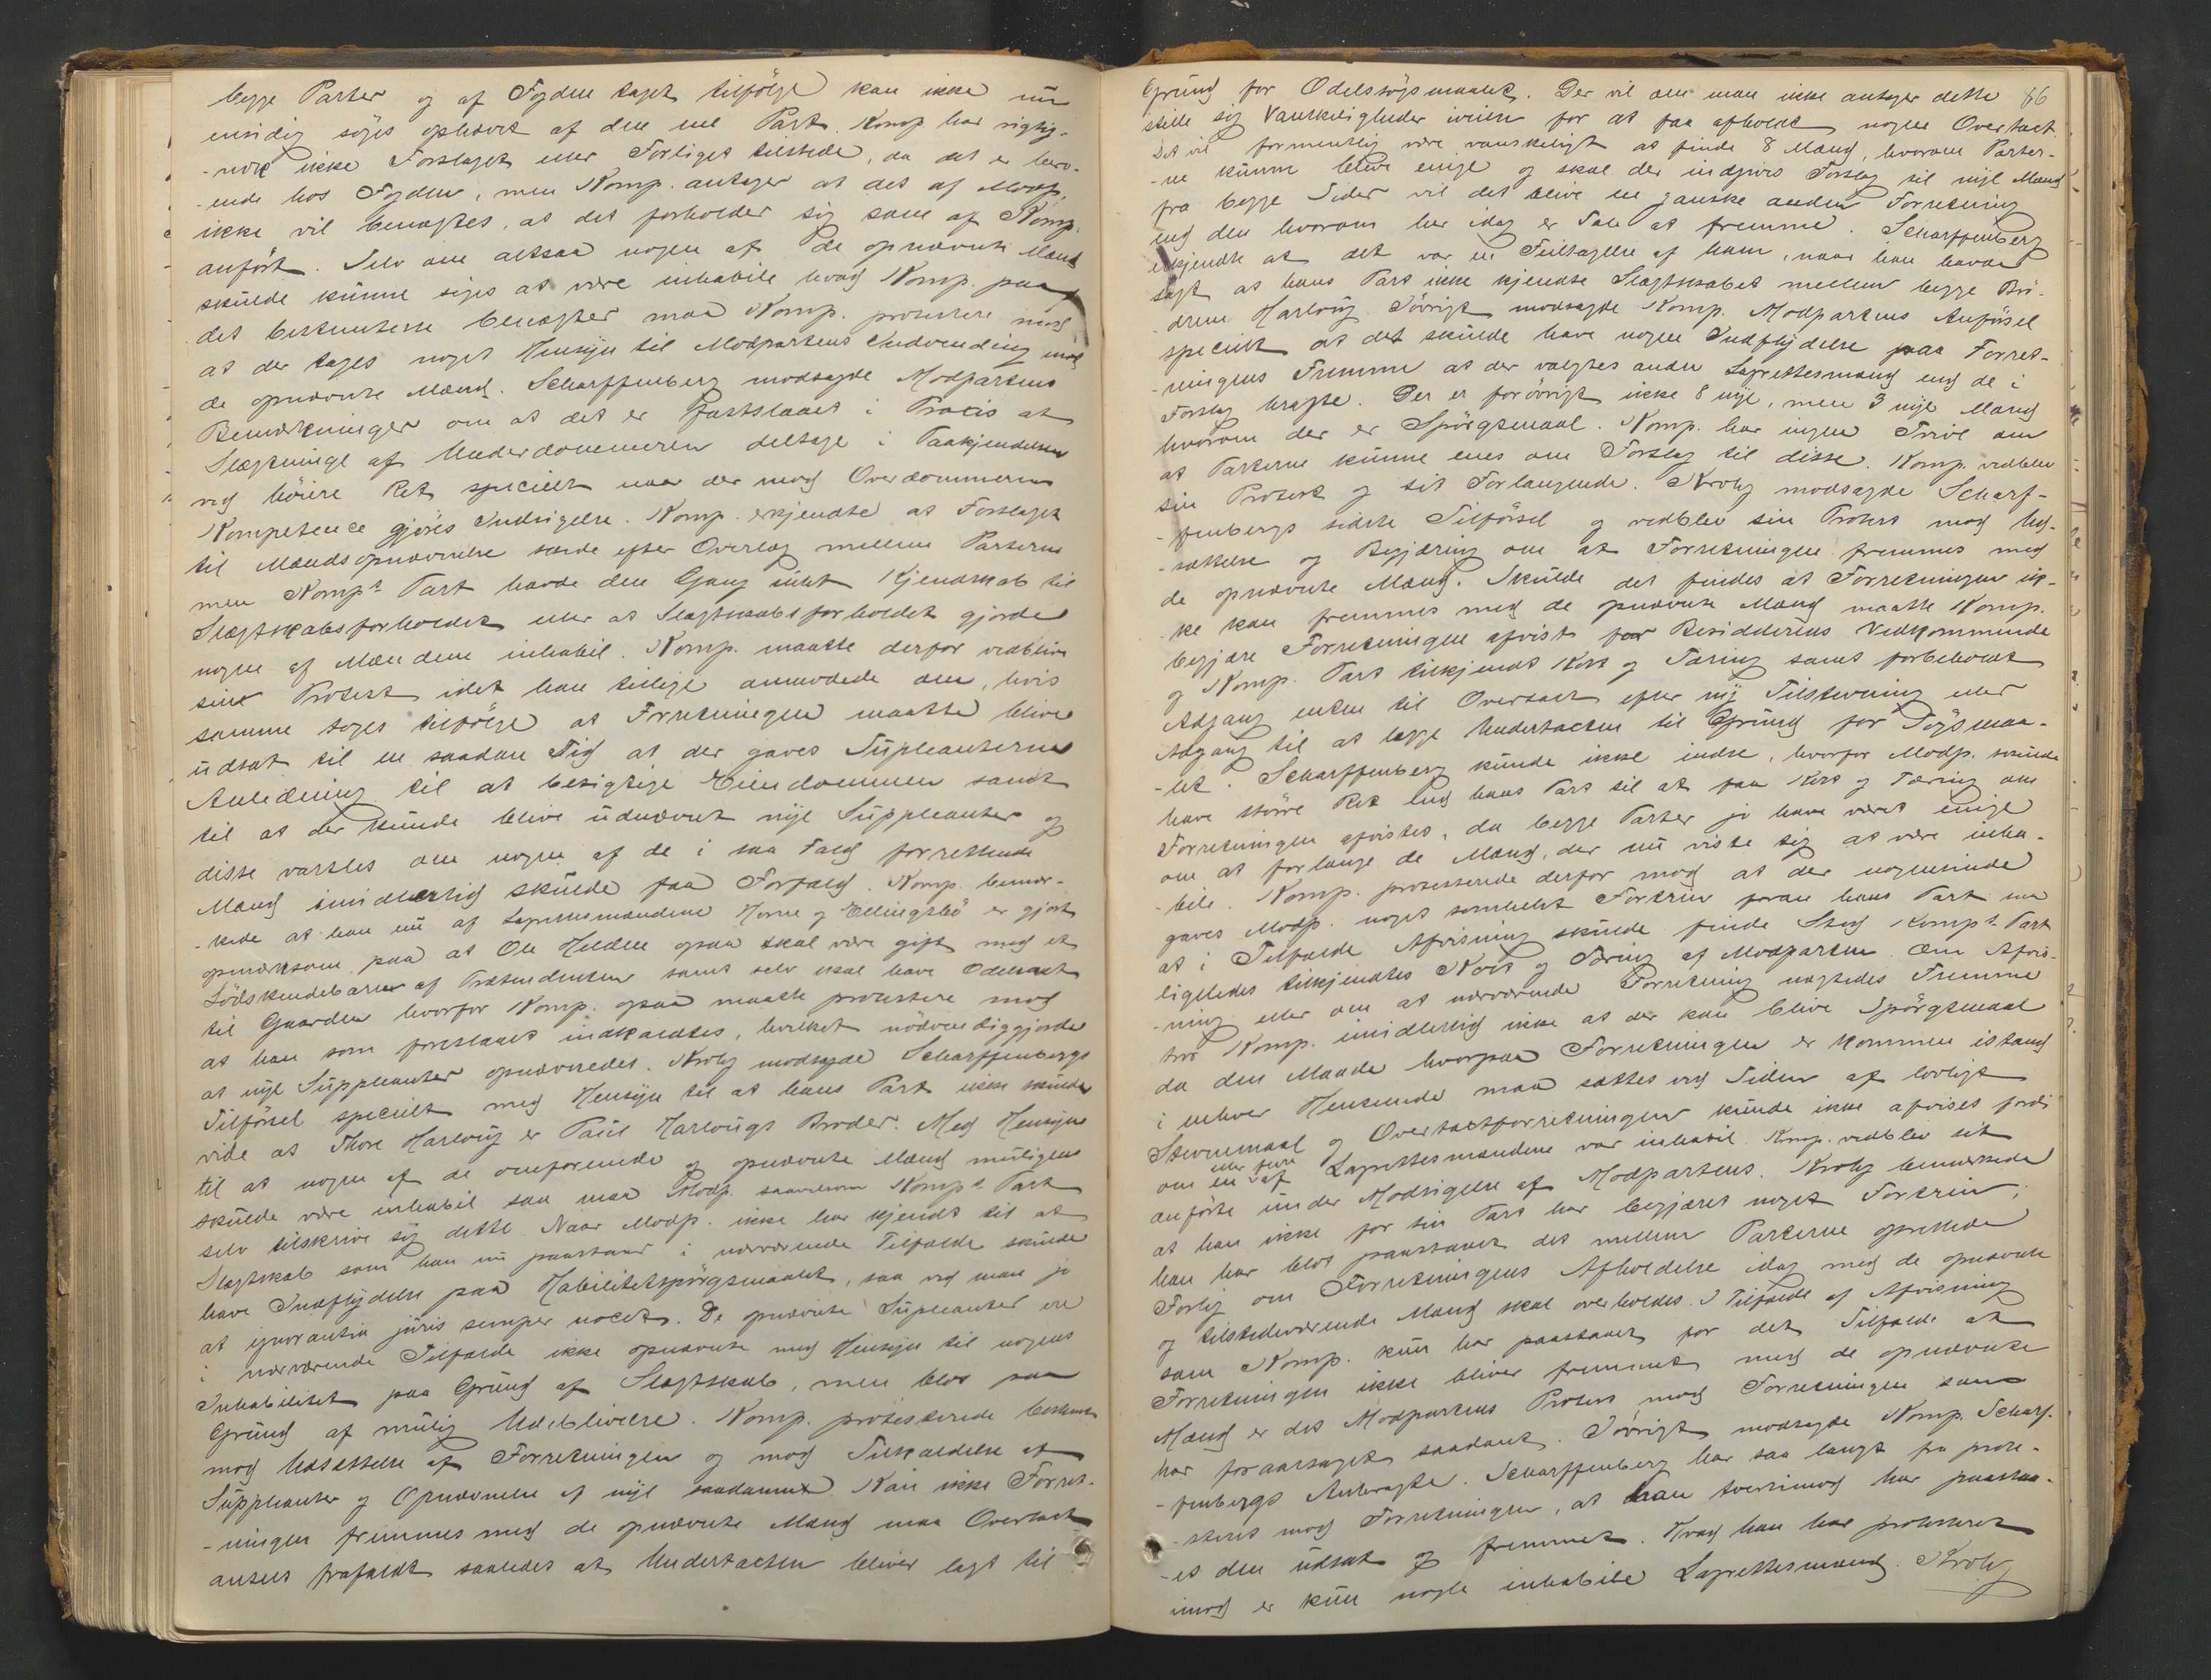 begge Parter og af Fogden taget tilfölge kan ikke nu
ensidig söges ophævet af den ene Part. Komp har rigtig-
-nok ikke Forslaget eller Forliget tilstede, da det er bero-
-ende hos Fogden, men Komp. antager at det af Modp.
ikke vil benægtes, at det forholder sig som af Komp.
anfört. Selv om altsaa nogen af de opnævnte Mænd
skulde kunne siges at være inhabile hvad Komp. paa
det bestemteste benægter maa Komp. protestere mod
at der tages noget Hensyn til Modpartens Indvending mod
de opnævnte Mænd. Scharffenberg modsagde Modpartens
Bemærkninger om at det er fastslaaet i Praxis at
Slægtninge af Underdommeren deltage i Paakjendelsen
ved höiere Ret specielt naar der mod Overdommerens
Kompetence gjöres Indsigelse. Komp. erkjendte at Forslaget
til Mændsopnævnelse skede efter Overlæg mellem Parterne
men Komps Part havde den Gang intet Kjendskab til
Slægtskabsforholdet eller at Slægtskabsforholdet gjorde
nogen af Mændene inhabil. Komp. maatte derfor vedblive
sin Protest idet han tillige anmodede om, hvis
samme toges tilfölge at Forretningen maatte blive
udsat til en saadan Tid at der gaves Supleanterne
Anledning til at besigtige Eiendommen samt
til at der kunde blive udnævnt nye Suppleanter og
disse varsles om nogen af de i saa Fald forrettende
Mænd imidlertid skulde faa Forfald. Komp. bemær-
-kede at han nu af Lagrettesmændene Horne og Ellingsbö er gjort
opmærksom paa at Ole Helden ogsaa skal være gift med et
Södskendebarn af Prætendenten samt selv skal have Odelsret
til Gaarden hvorfor Komp. ogsaa maatte protestere mod
at han som foreslaaet indkaldtes, hvilket nödvendiggjorde
at nye Suppleanter opnævnedes. Krohg modsagde Scharffenbergs
Tilförsel specielt med Hensyn til at hans Part ikke skulde
vide at Thore Harloug er Paul Harlougs Broder. Med Hensyn
til at nogen af de omforenede og opnævnte Mænd muligens
skulde være inhabil saa maa Modp. saavelsom Komps Part
selv tilskrive sig dette. Naar Modp. ikke har kjendt til at
Slægtskab som han nu paastaar i nærværende Tilfælde skulde
have Indflydelse paa Habilitetspörgsmaalet, saa ved man jo
at ignorantia juris semper nocet. De opnævnte Supleanter ere
i nærværende Tilfælde ikke opnævnte med Hensyn til nogens
Inhabilitet paa Grund af Slægtskab, men blot paa
Grund af mulig Udeblivelse. Komp. protesterede bestemt
mod Udsættelse af Forretningen og mod Tilkaldelse af
Suppleanter og Opnævnelse af nye saadanne. Kan ikke Forret-
-ningen fremmes med de opnævnte Mænd maa Overtact
ansees frafaldt saaledes at Undertacten bliver lagt til
Grund for Odelssögsmaalet. Der vil om man ikke antager dette 86
stille sig Vanskeligheder iveien for at faa afholdt nogen Overtact.
Det vil formentlig være vanskeligt at finde 8 Mænd, hvorom Parter-
-ne kunne blive enige og skal der indgives Forslag til nye Mænd
fra begge Sider vil det blive en ganske anden Forretning
end den hvorom her idag er Tale at fremme. Scharffenberg
erkjendte at det var en Feiltagelse af ham, naar han havde
sagt at hans Part ikke kjendte Slægtskabet mellem begge Brö-
drene Harloug. Iövrigt modsagde Komp. Modpartens Anförsel
specielt at det skulde have nogen Indflydelse paa Forret-
-ningens Fremme at der valgtes anden Lagrettesmænd end de i
Forslag bragte. Der er forövrigt ikke 8 nye, men 3 nye Mænd
hvorom der er Spörgsmaal. Komp. har ingen Tvivl om
at Parterne kunne enes om Forslag til disse. Komp. vedblev
sin Protest og sit Forlangende. Krohg modsagde Scharf-
-fenbergs sidste Tilförsel og vedblev sin Protest mod Ud-
-sættelse og Begjæring om at Forretningen fremmes med
de opnævnte Mænd. Skulde det findes at Forretningen ik-
-ke kan fremmes med de opnævnte Mænd maatte Komp.
begjære Forretningen afvist for Besidderens Vedkommende
og Komp. Part tilkjendt Kost og Tæring samt forbeholdt
Adgang enten til Overtact efter ny Tilstevning eller
Adgang til at lægge Undertacten til Grund for Sögsmaa-
-let. Scharffenberg kunde ikke indse, hvorfor Modp. skulde
have större Ret end hans Part til at faa Kost og Tæring om
Forretningen afvistes, da begge Parter jo have været enige
om at forlange de Mænd, der nu viste sig at være inha-
-bile. Komp. protesterede derfor mod at der nogensinde
gaves Modp. noget somhelst Fortrin foran hans Part men
at i Tilfælde Afvisning skulde finde Sted Komps Part
ligeledes tilkjendtes Kost og Tæring af Modparten. Om Afvis-
-ning eller om at nærværende Forretning nægtedes Fremme
tror Komp. imidlertid ikke at der kan blive Spörgsmaal
da den Maade hvorpaa Forretningen er kommen istand
i enhver Henseende maa sættes ved Siden af lovligt
Stevnemaal og Overtactforretningen kunde ikke afvises fordi
om en eller flere af Lagrettesmændene var inhabil. Komp. vedblev sit
anförte under Modsigelse af Modpartens. Krohg bemærkede
at han ikke for sin Part har begjæret noget Fortrin;
han har blot paastaaet det mellem Parterne oprettede
Forlig om Forretningens Afholdelse idag med de opnævnte
og tilstedeværende Mænd skal overholdes. I Tilfælde af Afvisning
som Komp. kun har paastaaet for det Tilfælde at
Forretningen ikke bliver fremmet med de opnævnte
Mænd er det Modpartens Protest mod Forretningen som
har foraarsaget saadant. Iövrigt modsagde Komp. Scharf-
-fenbergs Anbragte. Scharffenberg har saa langt fra prote-
-steret mod Forretningen, at han tvertimod har paastaa-
-et den udsat og fremmet. Hvad han har protesteret
imod er kun nogle inhabile Lagrettesmænd. Krohg